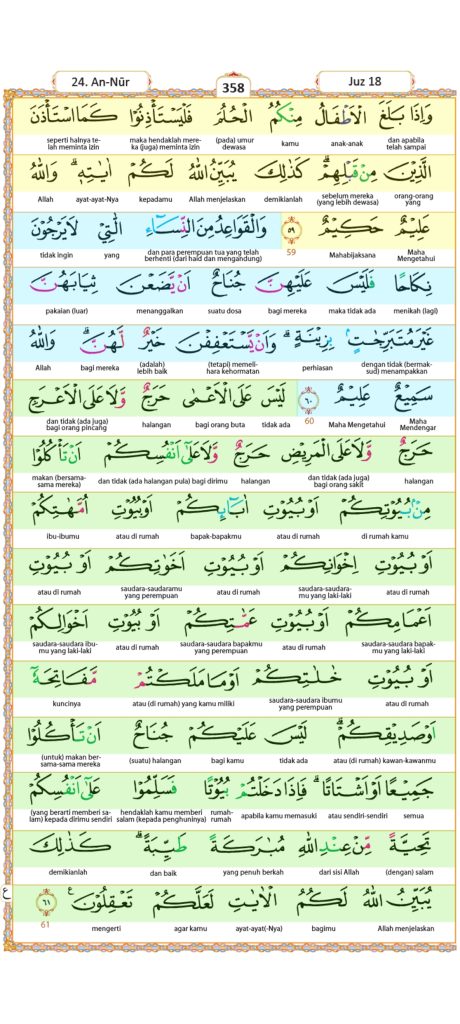 24. An-Nūr
358
Juz 18
وَاِذَا بَلَغَ الْاَطْفَالُ مِنْكُمُ الْحُلُمَ فَلْيَسْتَأْذِنُوْا كَمَا اسْتَأْذَنَ
dan apabila telah sampai anak-anak kamu (pada) umur dewasa maka hendaklah mereka (juga) meminta izin seperti halnya telah meminta izin
الَّذِيْنَ مِنْ قَبْلِهِمْۗ كَذٰلِكَ يُبَيِّنُ اللّٰهُ لَكُمْ اٰيٰتِهٖۗ وَاللّٰهُ
orang-orang yang sebelum mereka (yang lebih dewasa) demikianlah Allah menjelaskan kepadamu ayat-ayat-Nya Allah
عَلِيْمٌ حَكِيْمٌ ٥٩ وَالْقَوَاعِدُ مِنَ النِّسَاۤءِ الّٰتِيْ لَا يَرْجُوْنَ
Maha Mengetahui Mahabijaksana 59 dan para perempuan tua yang telah berhenti (dari haid dan mengandung) yang tidak ingin
نِكَاحًا فَلَيْسَ عَلَيْهِنَّ جُنَاحٌ اَنْ يَّضَعْنَ ثِيَابَهُنَّ
menikah (lagi) maka tidak ada bagi mereka suatu dosa menanggalkan pakaian (luar)
غَيْرَ مُتَبَرِّجٰتٍۢ بِزِيْنَةٍۗ وَاَنْ يَّسْتَعْفِفْنَ خَيْرٌ لَّهُنَّۗ وَاللّٰهُ
dengan tidak (bermaksud) menampakkan perhiasan (tetapi) memelihara kehormatan (adalah) lebih baik bagi mereka Allah
سَمِيْعٌ عَلِيْمٌ ٦٠ لَيْسَ عَلَى الْاَعْمٰى حَرَجٌ وَّلَا عَلَى الْاَعْرَجِ
Maha Mendengar Maha Mengetahui 60 tidak ada bagi orang buta halangan dan tidak (ada juga) bagi orang pincang
حَرَجٌ وَّلَا عَلَى الْمَرِيْضِ حَرَجٌ وَّلَا عَلٰٓى اَنْفُسِكُمْ اَنْ تَأْكُلُوْا
halangan dan tidak (ada juga) bagi orang sakit halangan dan tidak (ada halangan pula) bagi dirimu makan (bersama-sama mereka)
مِنْۢ بُيُوْتِكُمْ اَوْ بُيُوْتِ اٰبَاۤىِٕكُمْ اَوْ بُيُوْتِ اُمَّهٰتِكُمْ
di rumah kamu atau di rumah bapak-bapakmu atau di rumah ibu-ibumu
اَوْ بُيُوْتِ اِخْوَانِكُمْ اَوْ بُيُوْتِ اَخَوٰتِكُمْ اَوْ بُيُوْتِ
atau di rumah saudara-saudaramu yang laki-laki atau di rumah saudara-saudaramu yang perempuan atau di rumah
اَعْمَامِكُمْ اَوْ بُيُوْتِ عَمّٰتِكُمْ اَوْ بُيُوْتِ اَخْوَالِكُمْ
saudara-saudara bapakmu yang laki-laki atau di rumah saudara-saudara bapakmu yang perempuan atau di rumah saudara-saudara ibumu yang laki-laki
اَوْ بُيُوْتِ خٰلٰتِكُمْ اَوْ مَا مَلَكْتُمْ مَّفَاتِحَهٗٓ
atau di rumah saudara-saudara ibumu yang perempuan atau (di rumah) yang kamu miliki kuncinya
اَوْ صَدِيْقِكُمْۗ لَيْسَ عَلَيْكُمْ جُنَاحٌ اَنْ تَأْكُلُوْا
atau (di rumah) kawan-kawanmu tidak ada bagi kamu (suatu) halangan (untuk) makan bersama-sama mereka
جَمِيْعًا اَوْ اَشْتَاتًاۗ فَاِذَا دَخَلْتُمْ بُيُوْتًا فَسَلِّمُوْا عَلٰٓى اَنْفُسِكُمْ
semua atau sendiri-sendiri apabila kamu memasuki rumah-rumah hendaklah kamu memberi salam (kepada penghuninya) (yang berarti memberi salam) kepada dirimu sendiri
تَحِيَّةً مِّنْ عِنْدِ اللّٰهِ مُبٰرَكَةً طَيِّبَةًۗ كَذٰلِكَ
(dengan) salam dari sisi Allah yang penuh berkah dan baik demikianlah
يُبَيِّنُ اللّٰهُ لَكُمُ الْاٰيٰتِ لَعَلَّكُمْ تَعْقِلُوْنَ ࣖ ٦١
Allah menjelaskan bagimu ayat-ayat(-Nya) agar kamu mengerti 61
ع